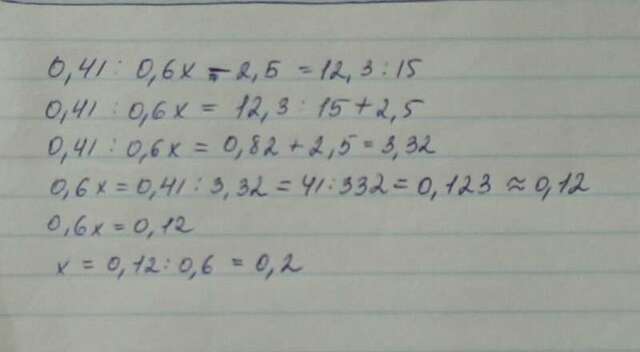 0,41 : 0,6x - 2,5 = 12,3 : 15
0,41 : 0,6x = 12,3 : 15 + 2,5
0,41 : 0,6x = 0,82 + 2,5 = 3,32
0,6x = 0,41 : 3,32 = 41 : 332 = 0,123 ≈ 0,12
0,6x = 0,12
x = 0,12 : 0,6 = 0,2